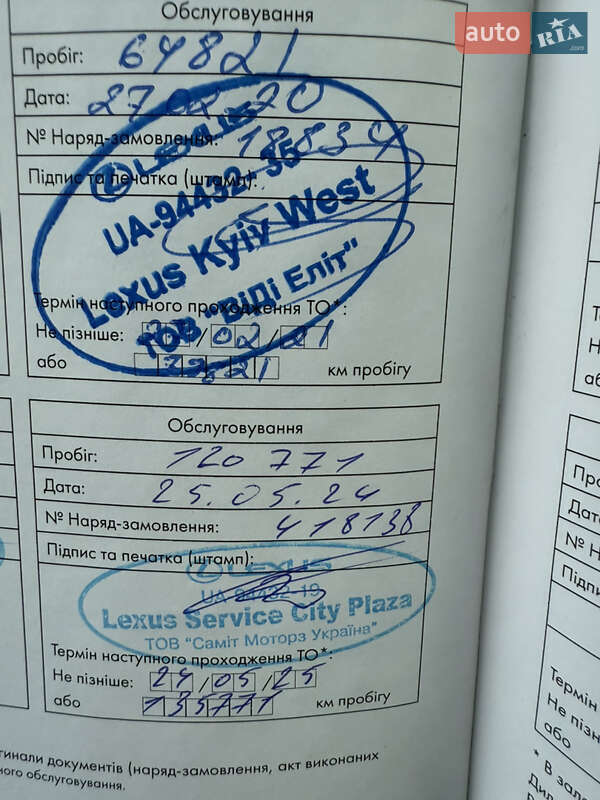 auto RIA .com
Обслуговування
Пробіг: 64821
Дата: 27.02.20
№ Наряд-замовлення: 18834
Підпис та печатка (штамп):
LEXUS
UA-94432-35
Lexus Kyiv West
ТОВ "Віді Еліт"
Термін наступного проходження ТО*:
Не пізніше: /02/21
або
км пробігу
Обслуговування
Пробіг: 120 771
Дата: 25.05.24
№ Наряд-замовлення: 418138
Підпис та печатка (штамп):
LEXUS
UA-94432-19
Lexus Service City Plaza
ТОВ "Саміт Моторз Україна"
Термін наступного проходження ТО*:
Не пізніше: 24/05/25
або 135771 км пробігу
гинали документів (наряд-замовлення, акт виконаних
ного обслуговування.
Про
Дата
№ Н
Підпи
Термін
Не пізні
або
* В зале